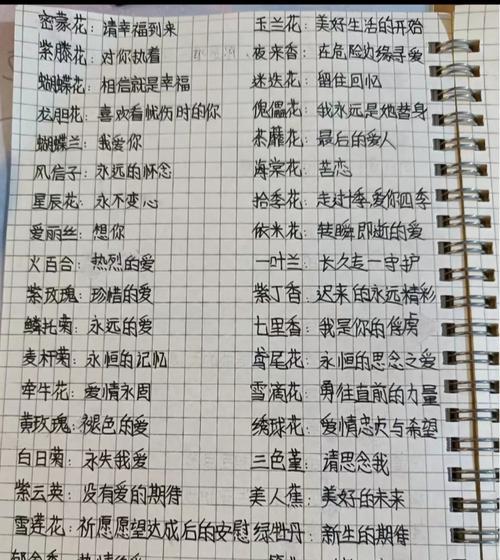 密蒙花：请幸福到来
紫藤花：对你执着
蝴蝶花：相信就是幸福
龙胆花：喜欢看忧伤时的你
蝴蝶兰：我爱你
风信子：永远的怀念
星辰花：永不变心
爱丽丝：想你
火百合：热烈的爱
紫玫瑰：珍惜的爱
鳞托菊：永远的爱
麦杆菊：永恒的记忆
牵牛花：爱情永固
黄玫瑰：褪色的爱
白日菊：永失我爱
紫云英：没有爱的期待
雪莲花：祈愿愿望达成后的安慰
玉兰花：美好生活的开始
夜来香：在危险边缘寻爱
迷迭花：留住回忆
傀儡花：我永远是她替身
荼蘼花：最后的爱人
海棠花：苦恋
拾季花：走过季,爱你四季
依米花：转瞬即逝的爱
一叶兰：长久走一守护
紫丁香：迟来的永远精彩
七里香：我是你的俘虏
鸢尾花：永恒的思念之爱
雪滴花：勇往直前的力量
绣球花：爱情忠贞与希望
三色堇：请思念我
美人蕉：美好的未来
绿牡丹：新生的期待